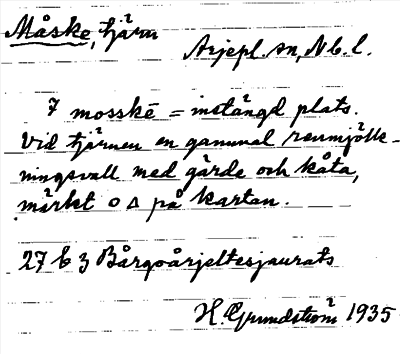 Måske, tjärn
Arjepl. sn, Nb. l.
7 mosskē = instängd plats.
Vid tjärnen en gammal renmjölk-
ningsvall med gärde och kåta,
märkt o Δ på kartan.
27 E 3 Bårgoårjeltesjaurats
H. Grundström 1935